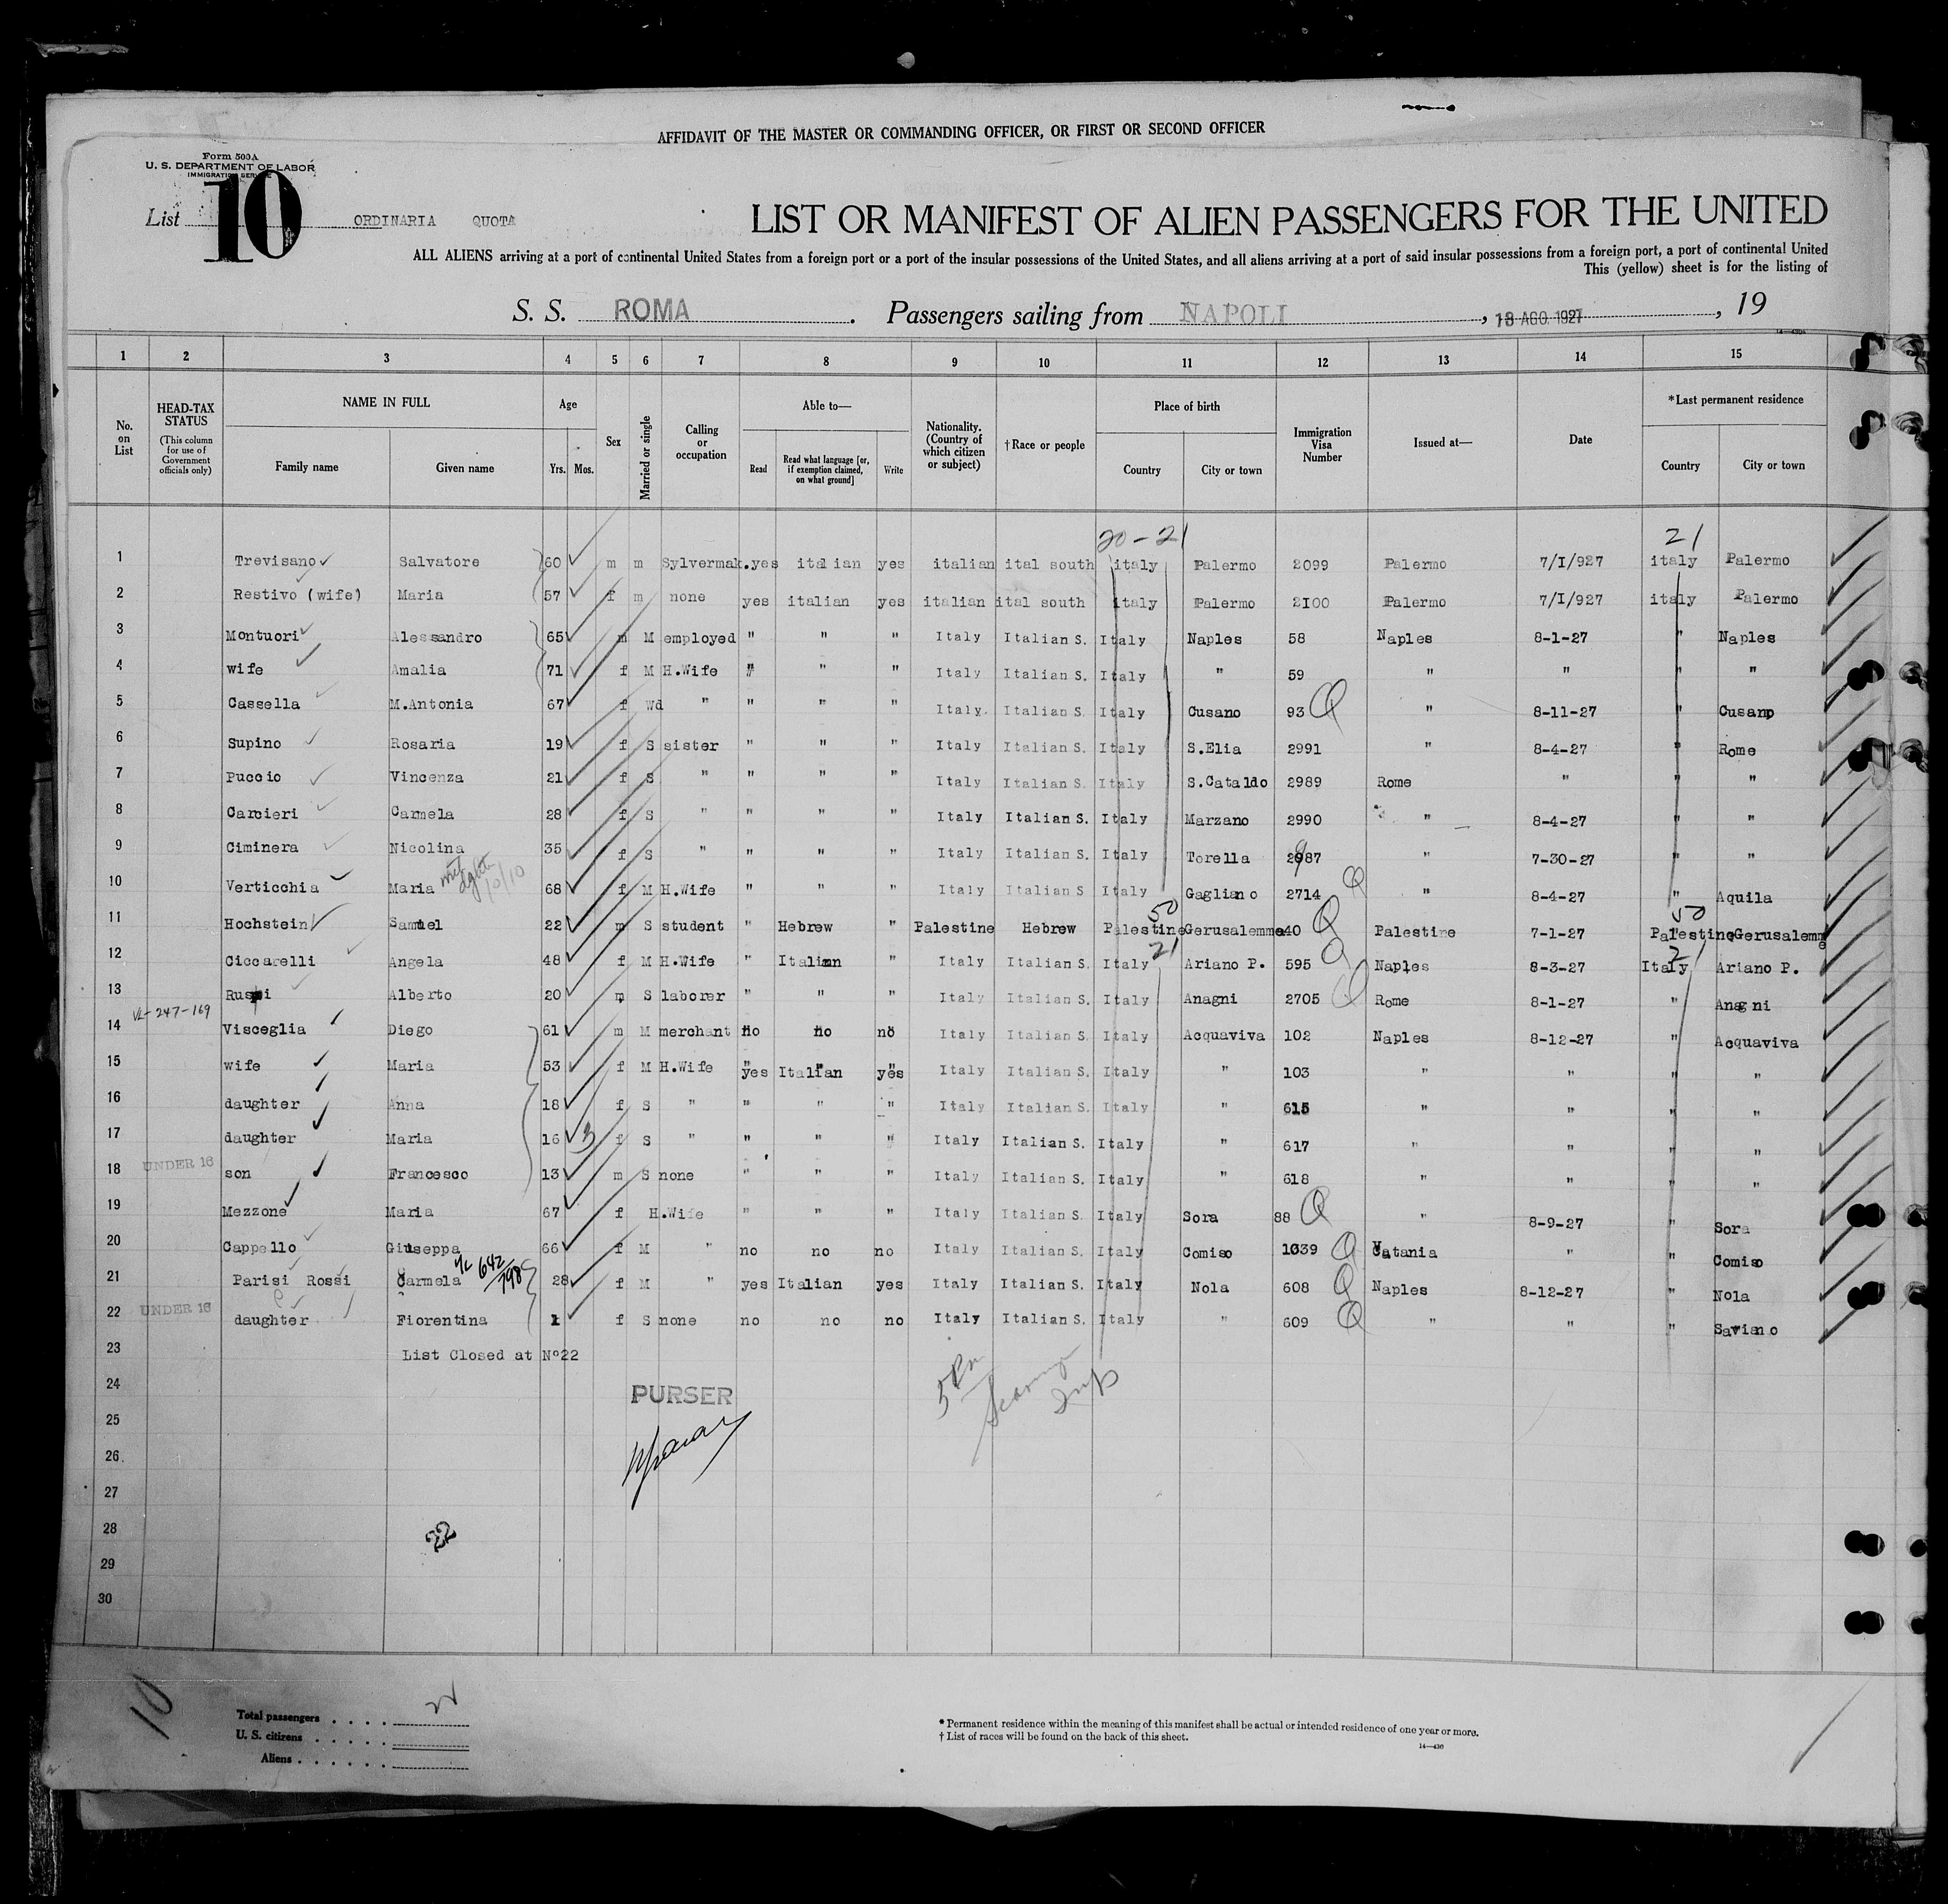 AFFIDAVIT OF THE MASTER OR COMMANDING OFFICER, OR FIRST OR SECOND OFFICER
Form 500A
U. S. DEPARTMENT OF LABOR
IMMIGRATION SERVICE
List 10 ORDINARIA QUOTA
LIST OR MANIFEST OF ALIEN PASSENGERS FOR THE UNITED
ALL ALIENS arriving at a port of continental United States from a foreign port or a port of the insular possessions of the United States, and all aliens arriving at a port of said insular possessions from a foreign port, a port of continental United
This (yellow) sheet is for the listing of
S. S. ROMA. Passengers sailing from NAPOLI, 18 AGO. 1927, 19
1 2 3 4 5 6 7 8 9 10 11 12 13 14 15
No. on List
HEAD-TAX STATUS (This column for use of Government officials only)
NAME IN FULL
Family name Given name
Age
Yrs. Mos.
Sex
Married or single
Calling or occupation
Able to—
Read
Read what language [or, if exemption claimed, on what ground]
Write
Nationality. (Country of which citizen or subject)
†Race or people
Place of birth
Country City or town
Immigration Visa Number
Issued at—
Date
*Last permanent residence
Country City or town
20-21 21
1 Trevisano Salvatore 60 m m Sylvermak. yes italian yes italian ital south italy Palermo 2099 Palermo 7/I/927 italy Palermo
2 Restivo (wife) Maria 57 f m none yes italian yes italian ital south italy Palermo 2I00 Palermo 7/I/927 italy Palermo
3 Montuori Alessandro 65 m M employed " " " Italy Italian S. Italy Naples 58 Naples 8-1-27 " Naples
4 wife Amalia 71 f M H.Wife " " " Italy Italian S. Italy " 59 " " " "
5 Cassella M.Antonia 67 f wd " " " " Italy. Italian S. Italy Cusano 93 Q " 8-11-27 " Cusano
6 Supino Rosaria 19 f S sister " " " Italy Italian S. Italy S.Elia 2991 " 8-4-27 " Rome
7 Puccio Vincenza 21 f S " " " " Italy Italian S. Italy S.Cataldo 2989 Rome " " "
8 Carcieri Carmela 28 f S " " " " Italy Italian S. Italy Marzano 2990 " 8-4-27 " "
9 Ciminera Nicolina 35 f S " " " " Italy Italian S. Italy Torella 2987 " 7-30-27 " "
10 Verticchia Maria 10/10 68 f M H.Wife " " " Italy Italian S Italy Gagliano 2714 Q " 8-4-27 " Aquila
50 50
11 Hochstein Samuel 22 m S student " Hebrew " Palestine Hebrew Palestine Gerusalemme 40 Q Palestine 7-1-27 Palestine Gerusalemme
21 21
12 Ciccarelli Angela 48 f M H.Wife " Italian " Italy Italian S. Italy Ariano P. 595 Q Naples 8-3-27 Italy Ariano P.
13 Alberto 20 m S laborer " " " Italy Italian S. Italy Anagni 2705 Q Rome 8-1-27 " Anagni
VL-247-169
14 Visceglia Diego 61 m M merchant no no no Italy Italian S. Italy Acquaviva 102 Naples 8-12-27 " Acquaviva
15 wife Maria 53 f M H.Wife yes Italian yes Italy Italian S. Italy " 103 " " " "
16 daughter Anna 18 f S " " " " Italy Italian S. Italy " 615 " " " "
17 daughter Maria 16 3 f S " " " " Italy Italian S. Italy " 617 " " " "
18 UNDER 16 son Francesco 13 m S none " " " Italy Italian S. Italy " 618 " " " "
19 Mezzone Maria 67 f H.Wife " " " Italy Italian S. Italy Sora 88 Q " 8-9-27 " Sora
20 Cappello Giuseppa 66 f M " no no no Italy Italian S. Italy Comiso 1039 Q Catania " " Comiso
21 Parisi Rossi Carmela 642/798 28 f M " yes Italian yes Italy Italian S. Italy Nola 608 Q Naples 8-12-27 " Nola
22 UNDER 16 daughter Fiorentina 1 f S none no no no Italy Italian S. Italy " 609 Q " " " Saviano
23 List Closed at Nº22
24 PURSER
25
26
27
28 22
29
30
10
Total passengers . . . . 22
U. S. citizens . . . . .
Aliens . . . . . .
* Permanent residence within the meaning of this manifest shall be actual or intended residence of one year or more.
† List of races will be found on the back of this sheet.
14—430